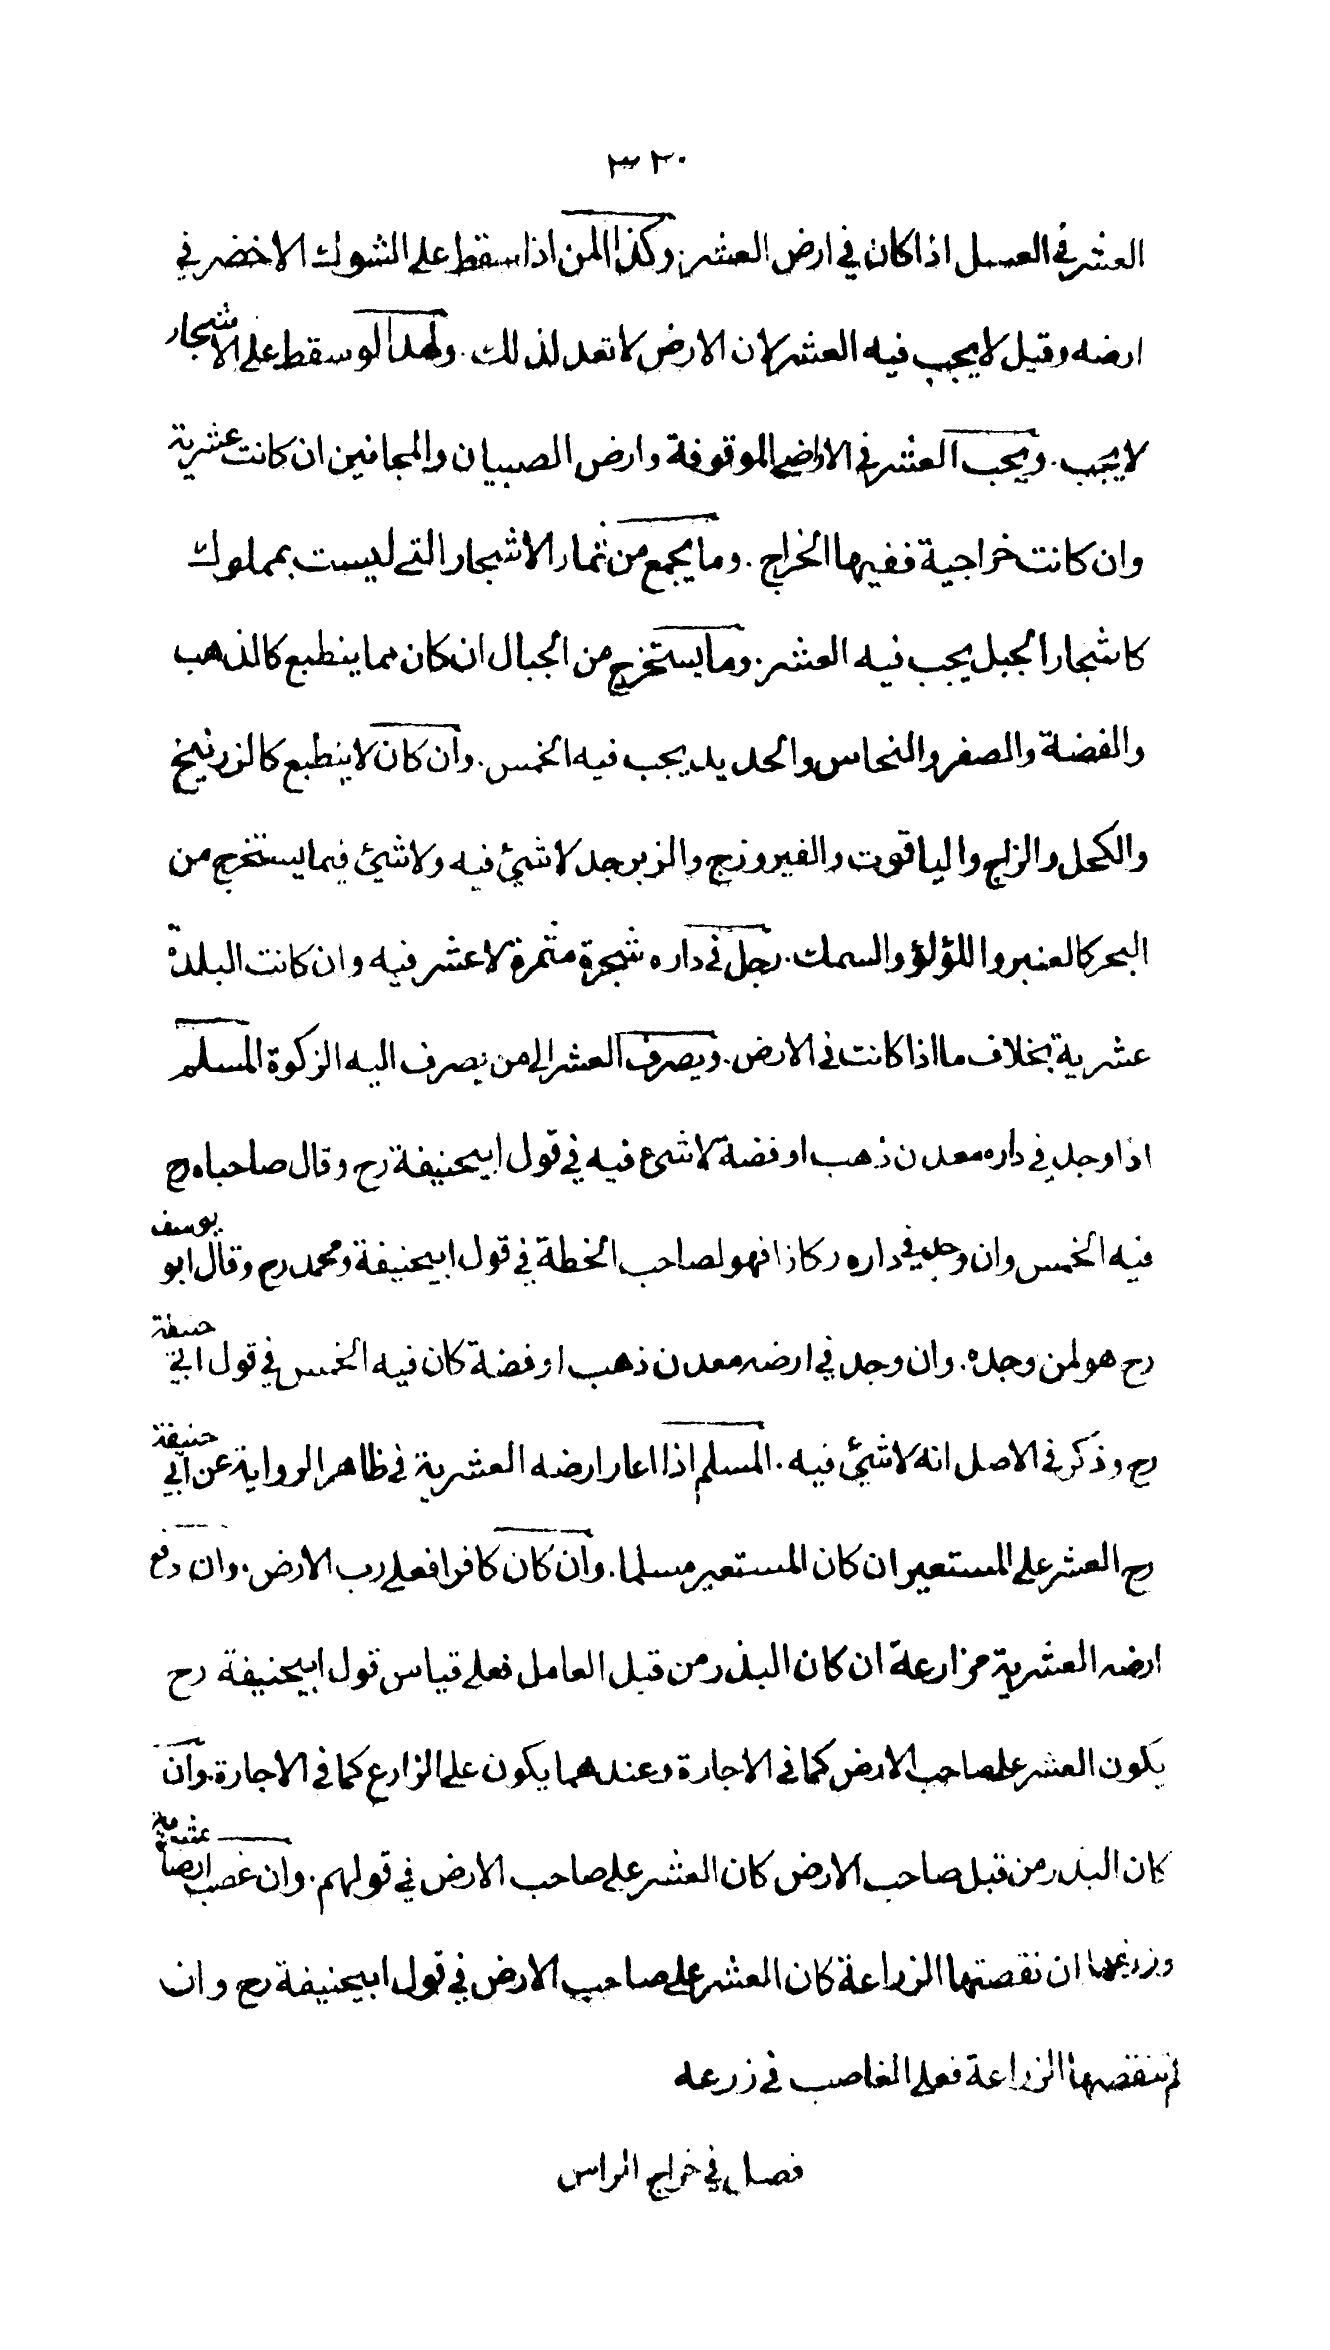 ٣٢٠
العشر في العسل اذا كان في ارض العشر. وكذا المن اذا سقط على الشوك الاخضر في
ارضه وقيل لا يجب فيه العشر لان الارض لا تعد لذلك. ولهذا لو سقط على الاشجار
لا يجب. ويجب العشر في الاراضي الموقوفة وارض الصبيان والمجانين ان كانت عشرية
وان كانت خراجية ففيها الخراج. وما يجمع من ثمار الاشجار التي ليست بمملوك
كاشجار الجبل يجب فيه العشر. وما يستخرج من الجبال ان كان مما ينطبع كالذهب
والفضة والصفر والنحاس والحديد يجب فيه الخمس. وان كان لا ينطبع كالزرنيخ
والكحل والزاج والياقوت والفيروزج والزبرجد لا شئ فيه ولا شئ فيما يستخرج من
البحر كالعنبر واللؤلؤ والسمك. رجل في داره شجرة مثمرة لا عشر فيه وان كانت البلدة
عشرية بخلاف ما اذا كانت في الارض. ويصرف العشر الى من يصرف اليه الزكوة المسلم
اذا وجد في داره معدن ذهب او فضة لا شئ فيه في قول ابيحنيفة رح وقال صاحباه رح
فيه الخمس وان وجد في داره ركازا فهو لصاحب الخطة في قول ابيحنيفة ومحمد رح وقال ابو يوسف
رح هو لمن وجده. وان وجد في ارضه معدن ذهب او فضة كان فيه الخمس في قول ابي حنيفة
رح وذكر في الاصل انه لا شئ فيه. المسلم اذا اعار ارضه العشرية في ظاهر الرواية عن ابي حنيفة
رح العشر على المستعير ان كان المستعير مسلما. وان كان كافرا فعلى رب الارض. وان دفع
ارضه العشرية مزارعة ان كان البذر من قبل العامل فعلى قياس قول ابيحنيفة رح
يكون العشر على صاحب الارض كما في الاجارة وعندهما يكون على الزارع كما في الاجارة. وان
كان البذر من قبل صاحب الارض كان العشر على صاحب الارض في قولهم. وان غصب ارضا عشرية
وزرعها ان نقصتها الزراعة كان العشر على صاحب الارض في قول ابيحنيفة رح وان
لم تنقصها الزراعة فعلى الغاصب في زرعه
فصل في خراج الراس